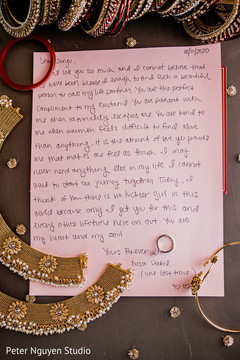 10/11/2020
Dear Sanjiv,
I love you so much and I cannot believe that
I have been blessed enough to find such a beautiful
person to call my life partner. You are the perfect
compliment to my existence. You are patient with
me when rationality escapes me. You are kind to
me when warmth feels difficult to find. More
than anything, it is the amount of love you provide
me that makes me feel as though I may
never need anything else in my life. I cannot
wait to start our journey together. Today, I
think of how there is no luckier girl in this
world because only I get you for this and
every other lifetime here on out. You are
my heart and my soul.
Yours Forever,
Puja Patel
(one last time
Peter Nguyen Studio